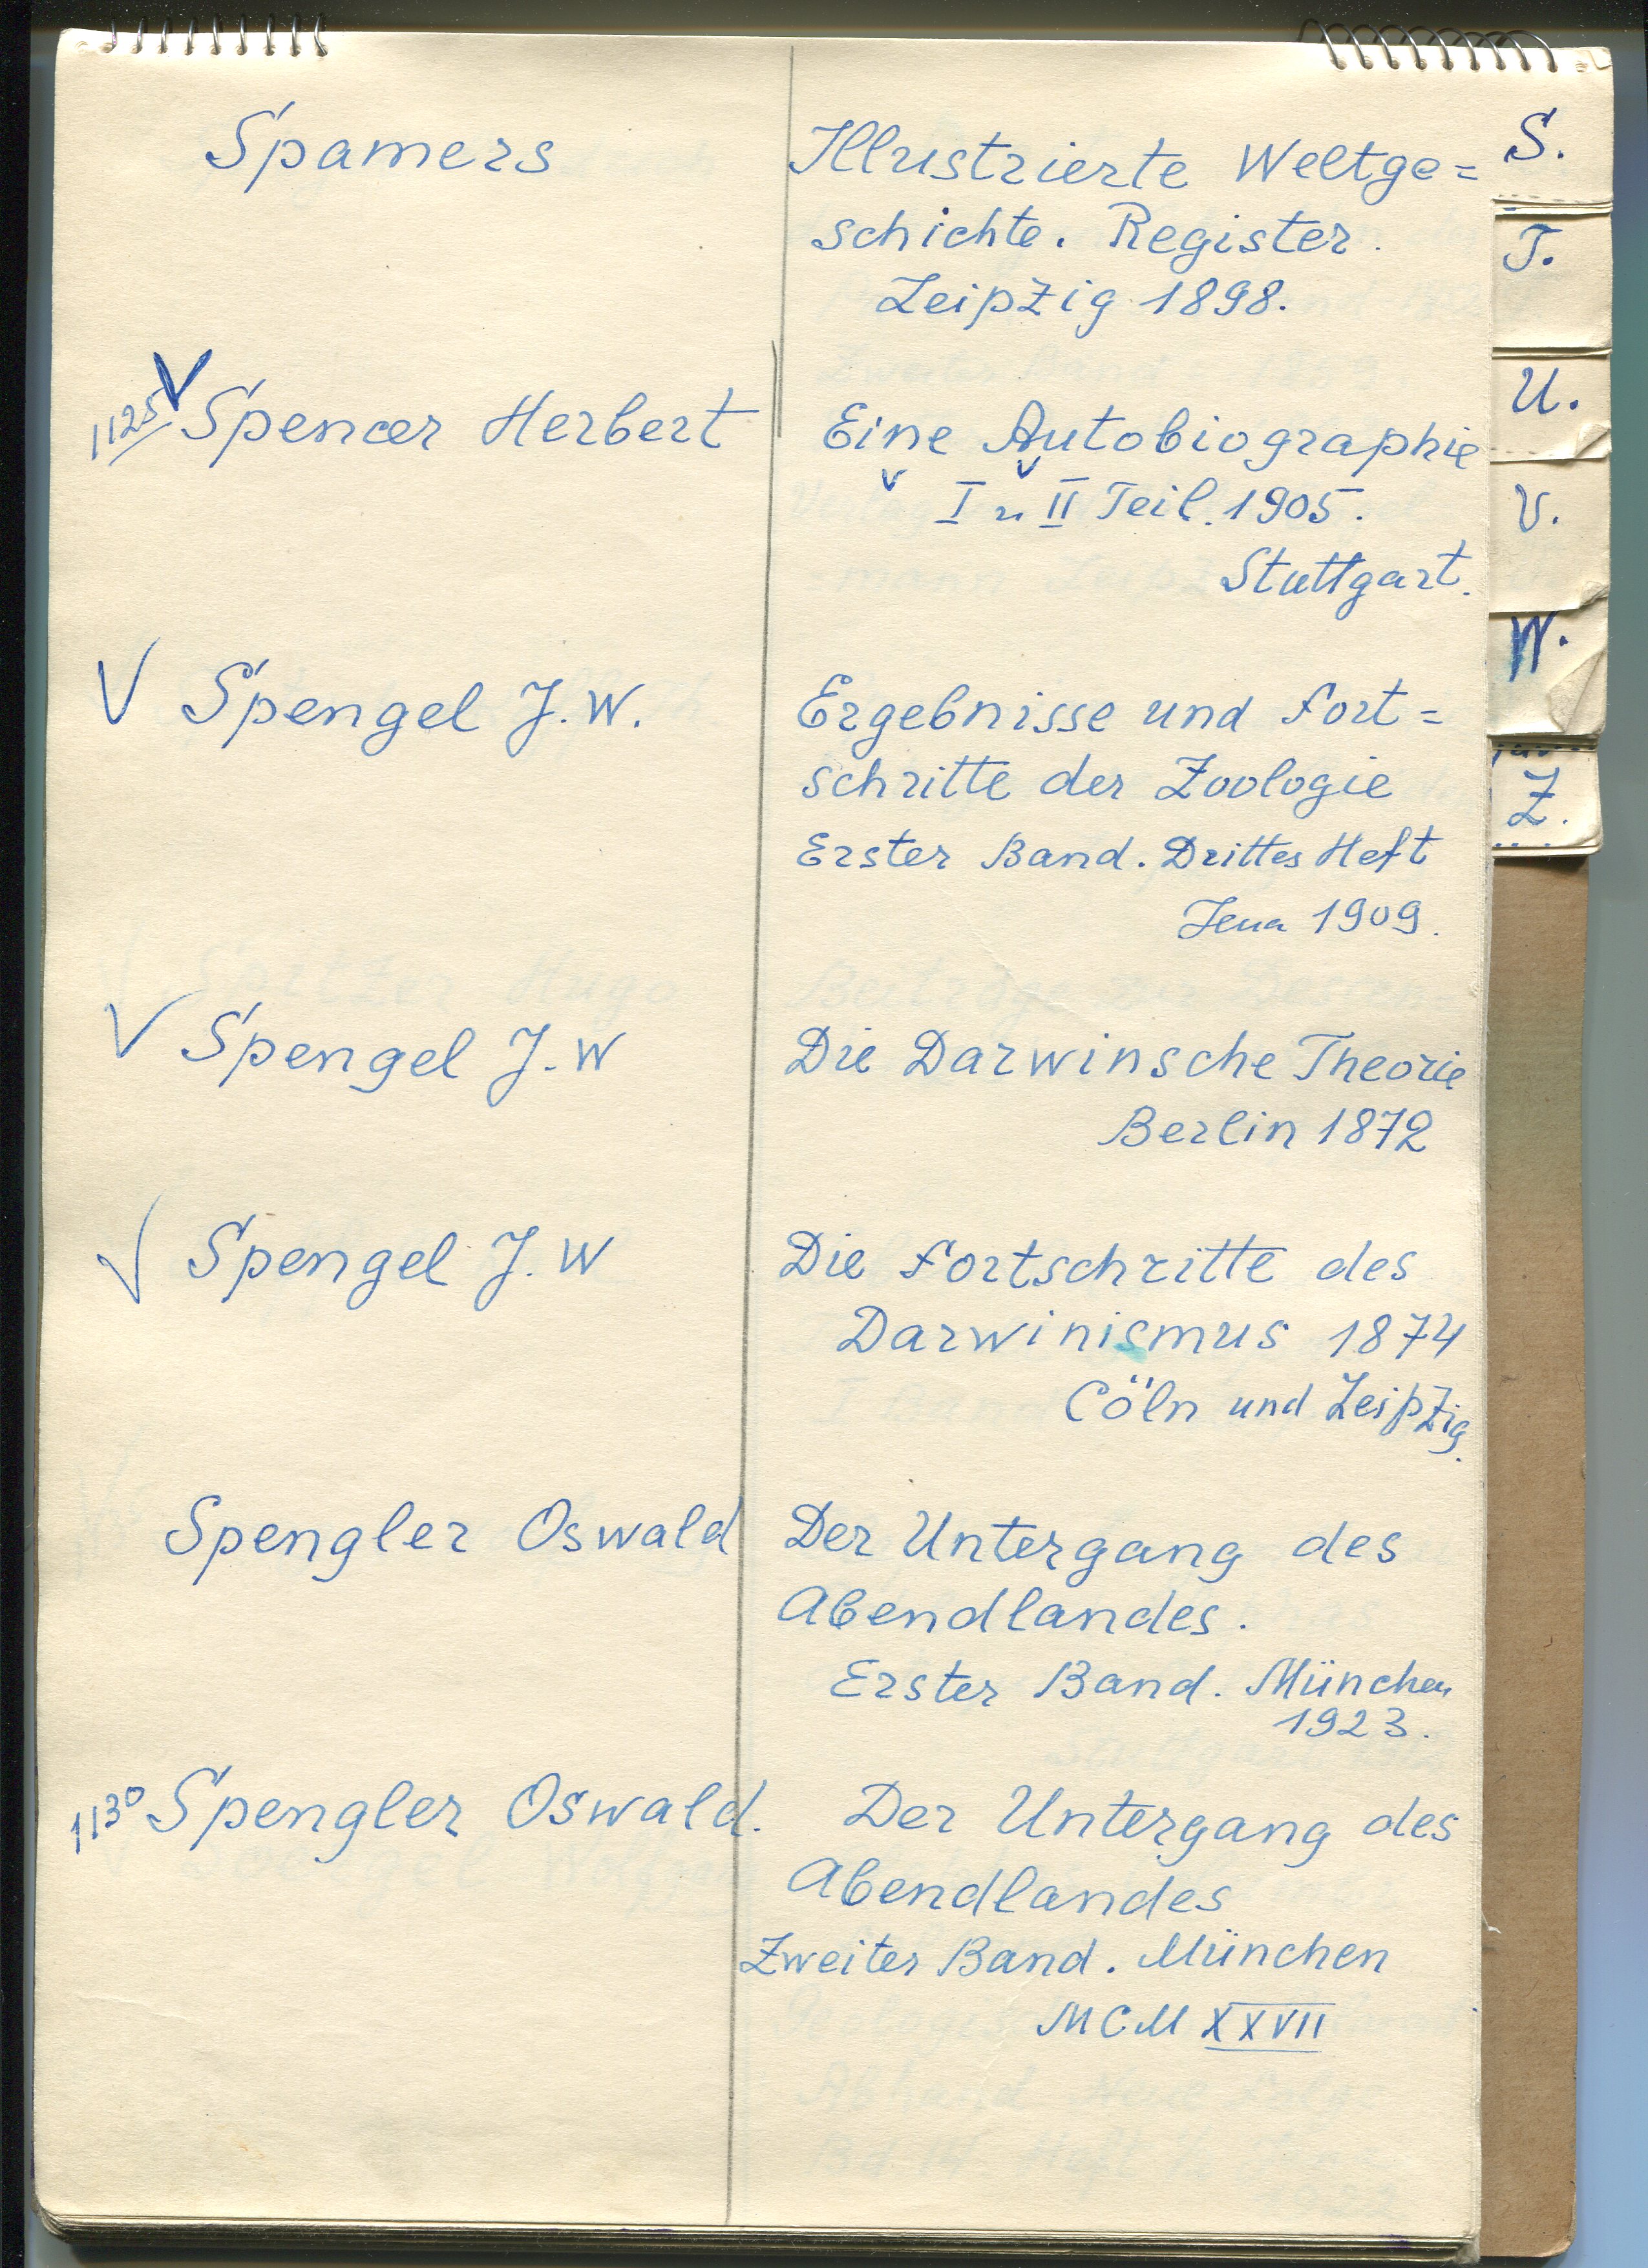 Spamers
Illustrierte Weltge=
schichte. Register.
Leipzig 1898.
1125 V Spencer Herbert
Eine Autobiographie
I u II Teil. 1905.
Stuttgart.
V Spengel J. W.
Ergebnisse und Fort=
schritte der Zoologie
Erster Band. Drittes Heft
Jena 1909.
V Spengel J. W
Die Darwinsche Theorie
Berlin 1872
V Spengel J. W
Die Fortschritte des
Darwinismus 1874
Cöln und Leipzig.
Spengler Oswald
Der Untergang des
Abendlandes.
Erster Band. München
1923.
1130 Spengler Oswald.
Der Untergang des
Abendlandes
Zweiter Band. München
MCMXXVII
S.
T.
U.
V.
W.
Z.